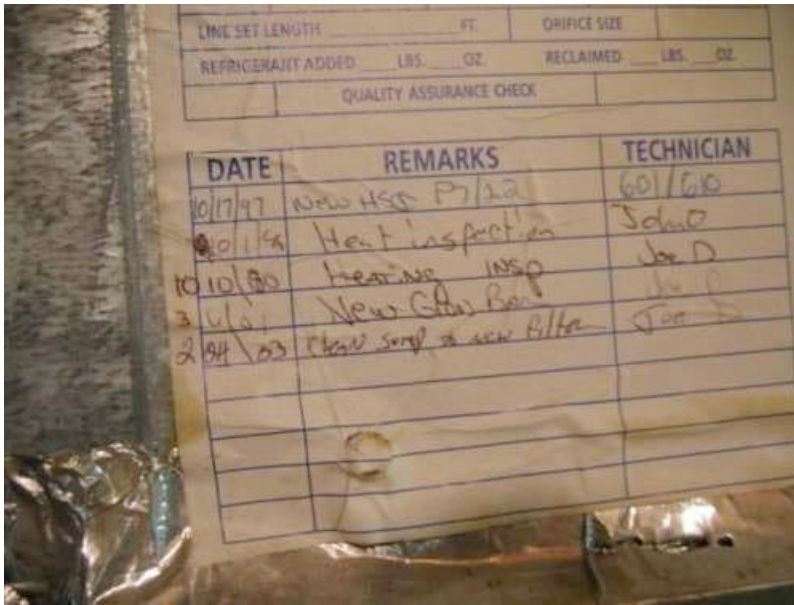 LINE SET LENGTH FT. ORIFICE SIZE
REFRIGERANT ADDED LBS. OZ. RECLAIMED LBS. OZ.
QUALITY ASSURANCE CHECK
DATE REMARKS TECHNICIAN
10/17/97 New 601/610
Heat inspection John O
10 10/00 Heating INSP Joe D
3 New Glow
2 24\03 Clean new filter Joe D